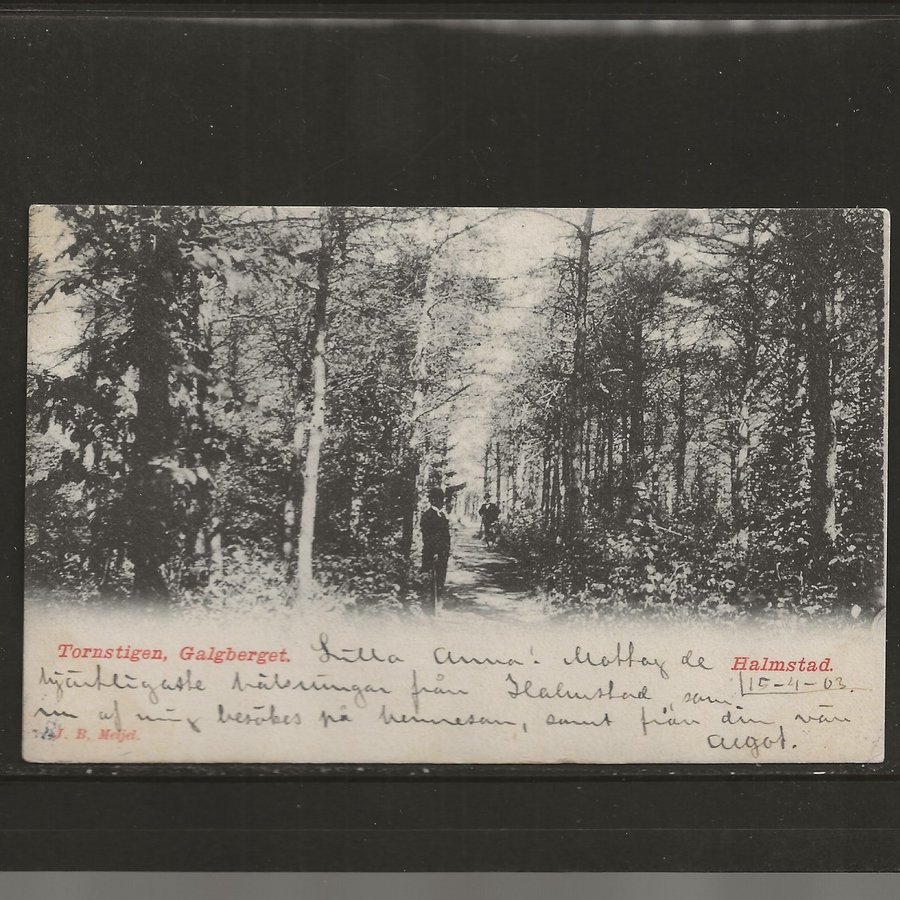 Tornstigen, Galgberget. Lilla Anna! Mottag de Halmstad.
hjärtligaste hälsningar från Halmstad, som 15-4-03.
nu af mig besökes på hemresan, samt från din vän
J. B. Meijel. Algot.